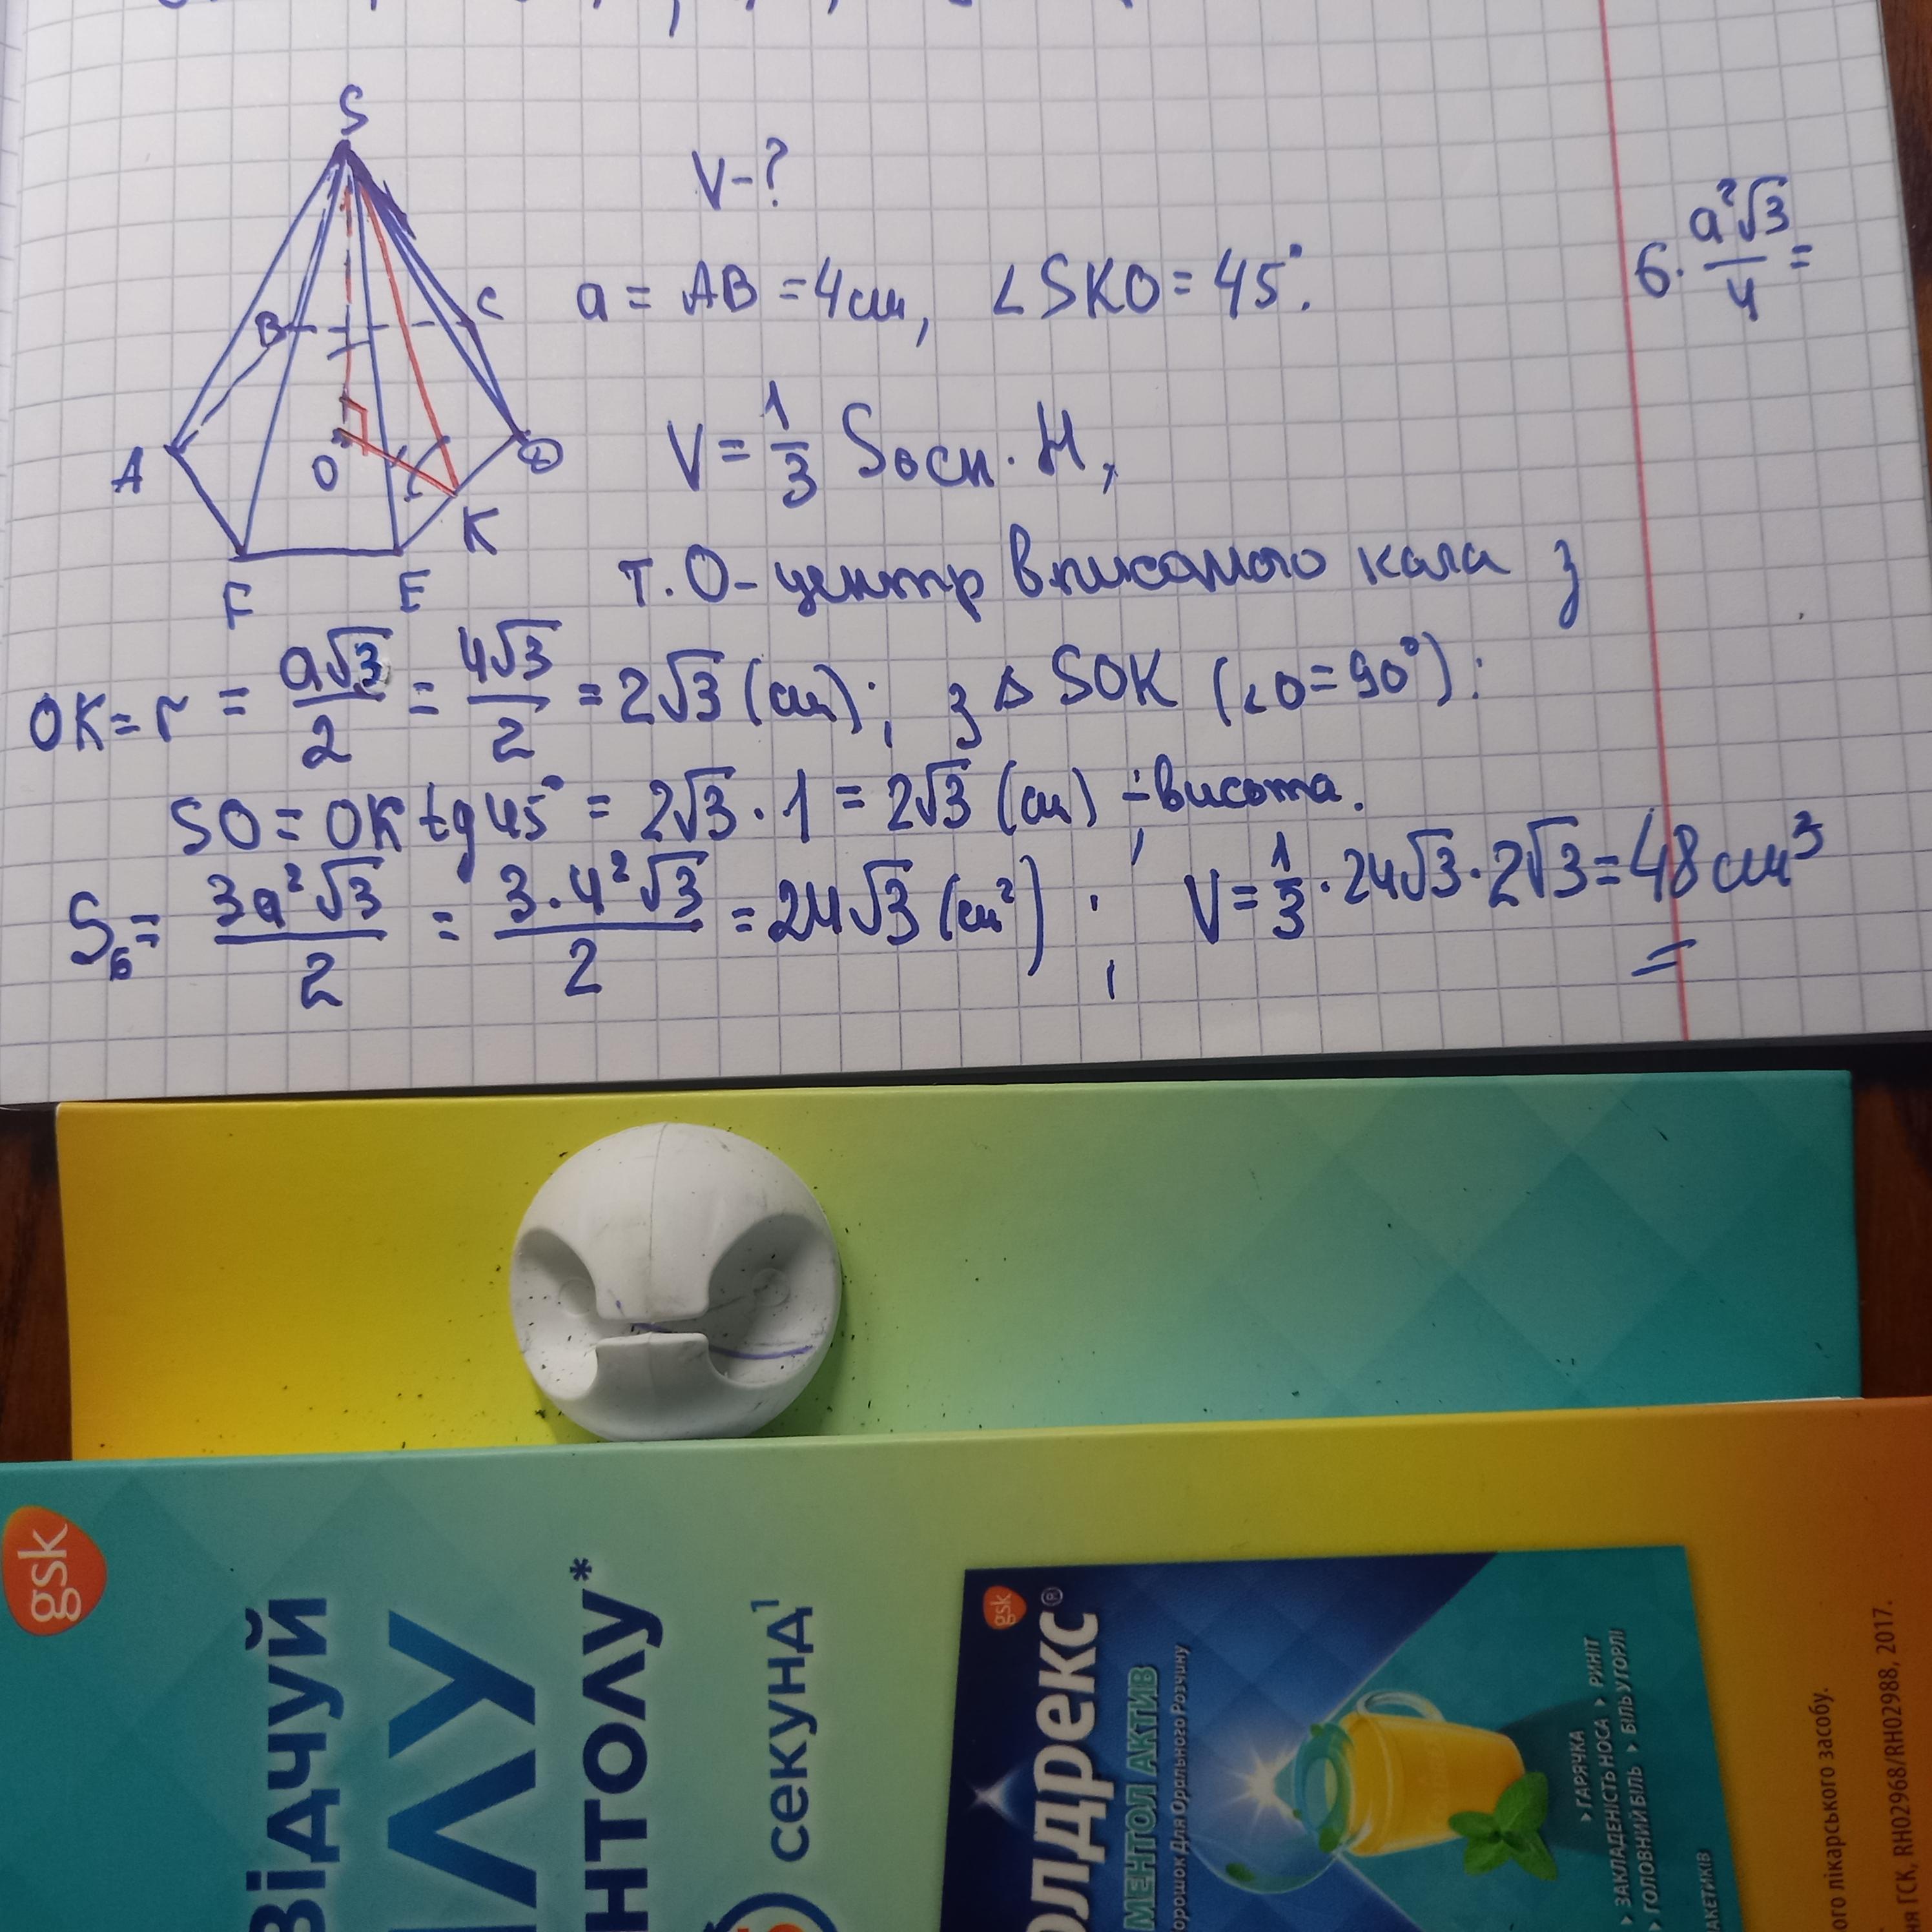 S
V-?
a = AB = 4см, ∠SKO = 45°.
6 · a²√3/4 =
B
C
A
O
D
K
F
E
V = 1/3 Sосн. H,
т. O - центр вписаного кола з
OK = r = a√3/2 = 4√3/2 = 2√3 (см); з Δ SOK (∠O = 90°):
SO = OK tg 45° = 2√3 · 1 = 2√3 (см) - висота.
S₆ = 3a²√3/2 = 3·4²√3/2 = 24√3 (см²); V = 1/3 · 24√3 · 2√3 = 48 см³
gsk
ВІДЧУЙ
ЛУ
НТОЛУ*
секунд¹
gsk
олдрекс®
МЕНТОЛ АКТИВ
орошок Для Орального Розчину
> ГАРЯЧКА
> ЗАКЛАДЕНІСТЬ НОСА > РИНІТ
> ГОЛОВНИЙ БІЛЬ > БІЛЬ У ГОРЛІ
АКЕТИКІВ
ого лікарського засобу.
ня ГСК, RH02968/RH02988, 2017.